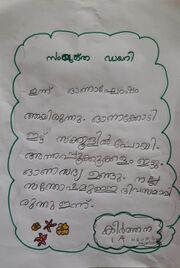 സംയുക്ത ഡയറി
ഇന്ന് ഓണാഘോഷം
ആയിരുന്നു. ഓണക്കോടി
ഇട്ട് സ്കൂളിൽ പോയി.
അത്തപ്പൂക്കളം ഇട്ടു.
ഓണസദ്യ ഉണ്ടു. നല്ല
സന്തോഷമുള്ള ദിവസമായി
രുന്നു ഇന്ന്.
കീർത്തന
1 A